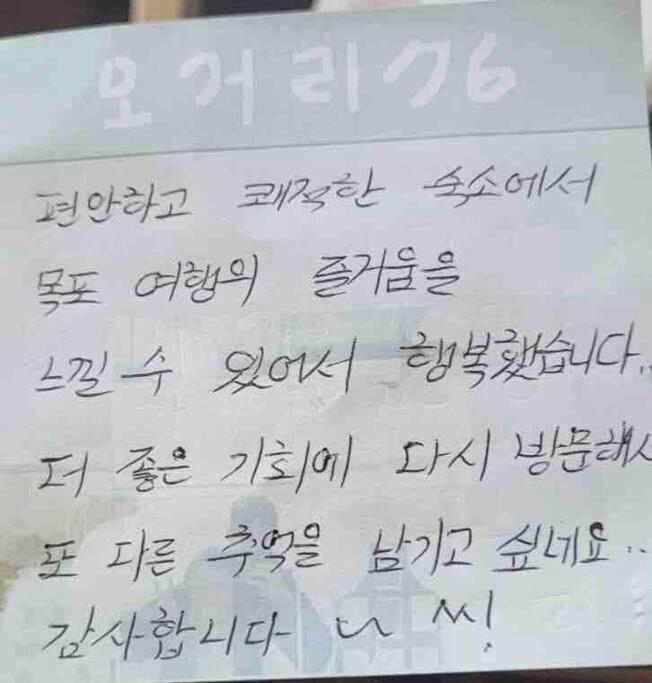 오거리76
편안하고 쾌적한 숙소에서
목포 여행의 즐거움을
느낄 수 있어서 행복했습니다..
더 좋은 기회에 다시 방문해서
또 다른 추억을 남기고 싶네요..
감사합니다